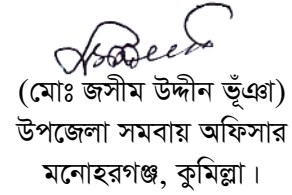 (মোঃ জসীম উদ্দীন ভূঁঞা)
উপজেলা সমবায় অফিসার
মনোহরগঞ্জ, কুমিল্লা।